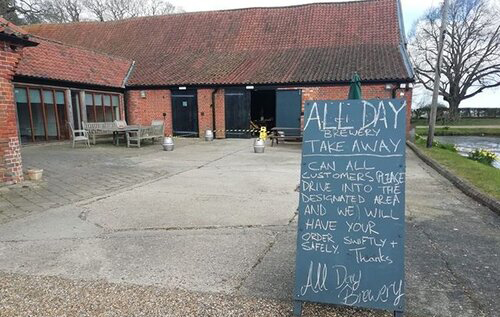 ALL DAY
BREWERY
TAKE AWAY
CAN ALL
CUSTOMERS PLEASE
DRIVE INTO THE
DESIGNATED AREA
AND WE WILL
HAVE YOUR
ORDER SWIFTLY +
SAFELY. Thanks
All Day
Brewery